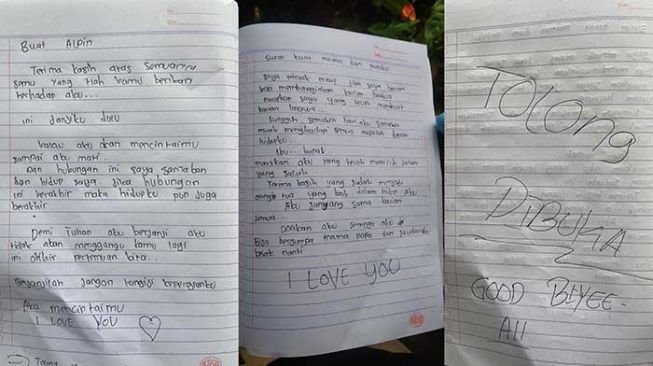 Buat Alpin
Terima kasih atas semuanya
yang tlah kamu berikan
terhadap aku...
ini janjiku dulu
kalau aku akan mencintaimu
sampai aku mati.
Dan hubungan ini saya samakan
hidup saya. Jika hubungan
ini berakhir maka hidupku pun juga
berakhir
Demi Tuhan aku berjanji aku
tidak akan mengganggu kamu lagi
ini akhir pertemuan kita...
jangan tangisi kepergianku
Aku mencintaimu
I LOVE YOU
Tolong
buat mama dan papaku
Saya minat maaf saya belum
membahagiakan kalian
maafkan saya yang telah membuat
kalian kecewa...
Sungguh semakin hari aku semakin
muak menghadapi semua masalah dalam
hidupku...
Ibu... bapak
maafkan aku yang telah memilih jalan
yang salah
Terima kasih yang sudah menjadi
orang tua yang baik dalam hidup Aku
Aku sayang sama kalian
semua...
Doakan aku semoga aku
Bisa berjumpa mama papa dan saudara
nanti
I LOVE YOU
TOLONG
DIBUKA
GOOD BAYEE-
All